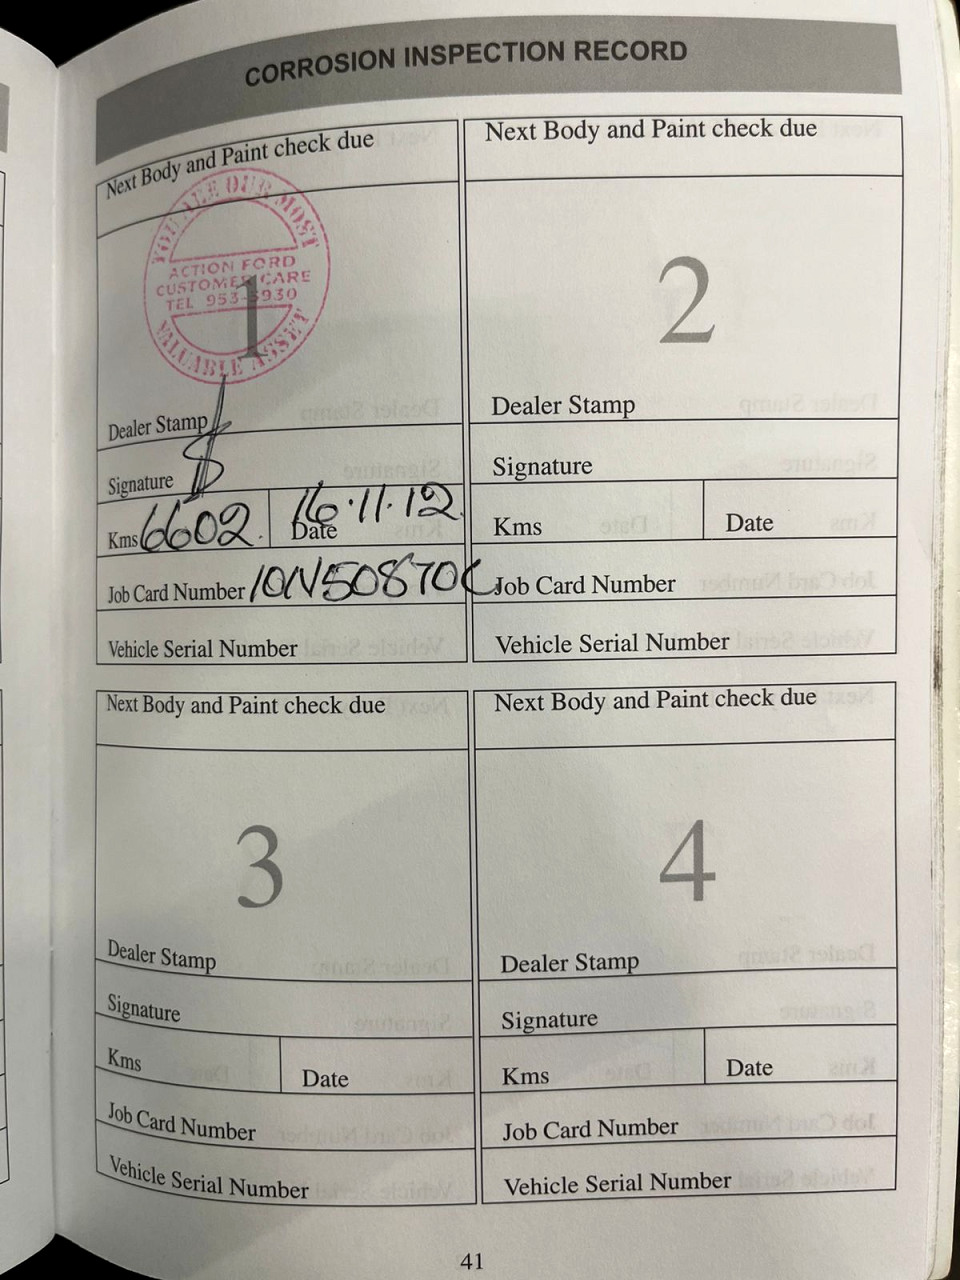 CORROSION INSPECTION RECORD
Next Body and Paint check due
YOU ARE OUR MOST
ACTION FORD
CUSTOMER CARE
TEL 953-3930
VALUABLE ASSET
1
Dealer Stamp
Signature
Kms 6602. Date 16.11.12.
Job Card Number 10N50870C
Vehicle Serial Number
Next Body and Paint check due
2
Dealer Stamp
Signature
Kms Date
Job Card Number
Vehicle Serial Number
Next Body and Paint check due
3
Dealer Stamp
Signature
Kms Date
Job Card Number
Vehicle Serial Number
Next Body and Paint check due
4
Dealer Stamp
Signature
Kms Date
Job Card Number
Vehicle Serial Number
41